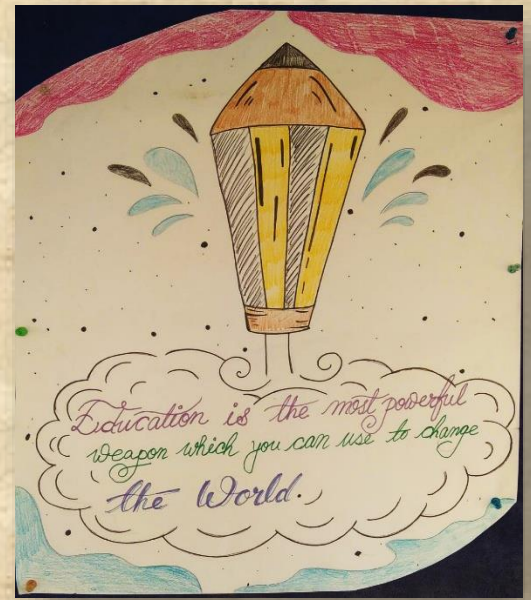 Education is the most powerful
weapon which you can use to change
the World.